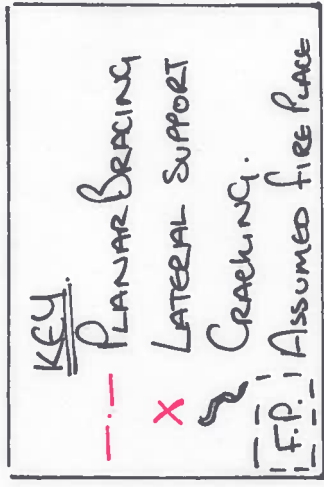 KEY.
PLANAR BRACING
X LATERAL SUPPORT
CRACKING.
F.P. ASSUMED FIRE PLACE